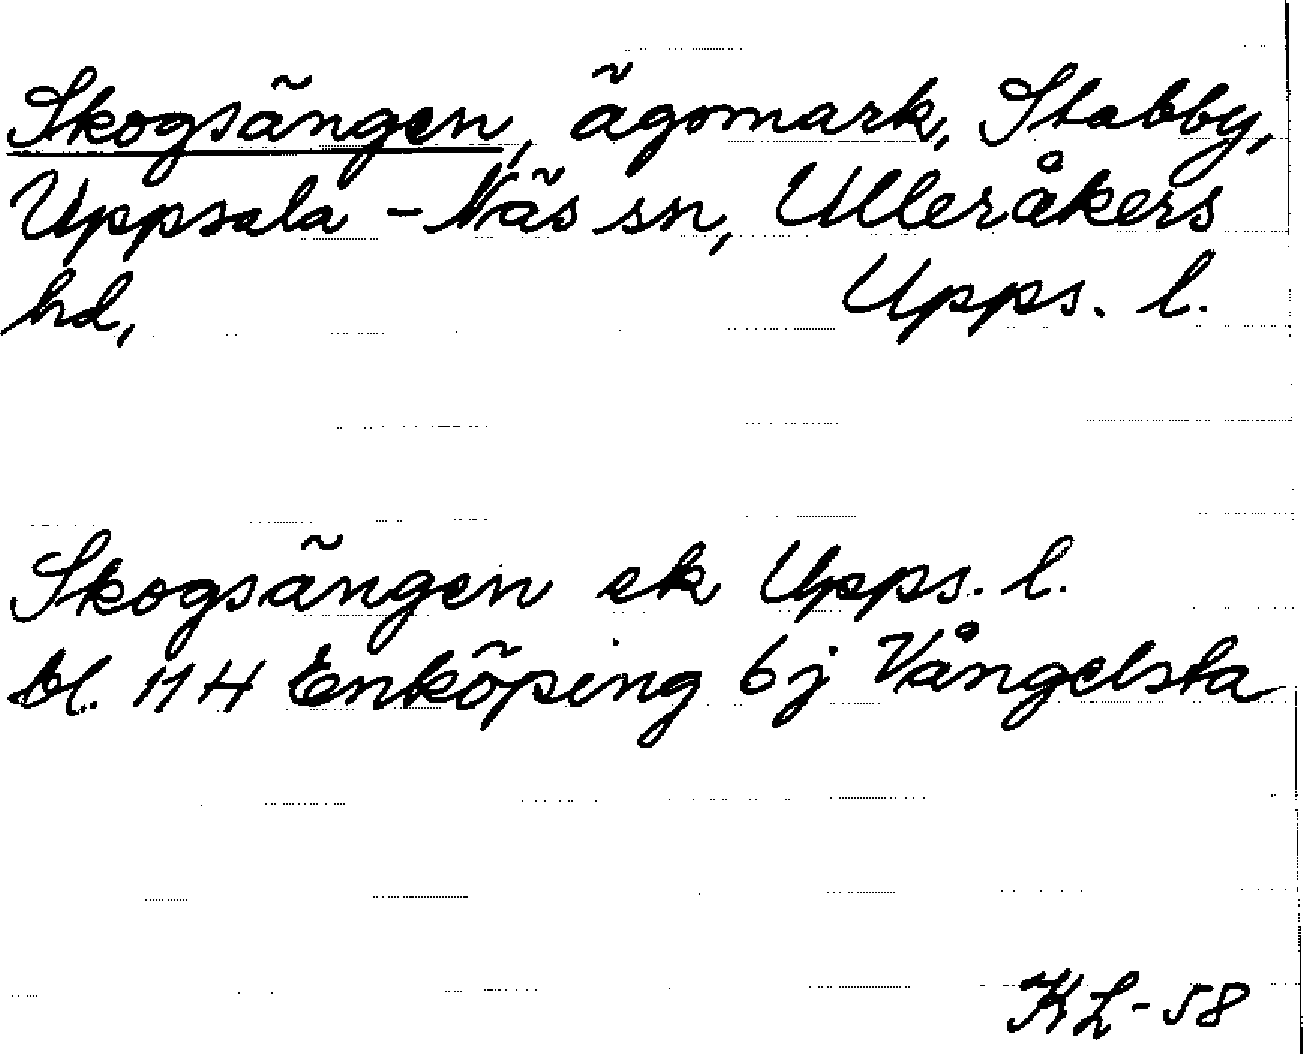 Skogsängen, ägomark, Stabby,
Uppsala - Näs sn, Ulleråkers
hd, Upps. l.
Skogsängen ek Upps. l.
bl. 11 H Enköping 6 j Vångelsta
KL-58